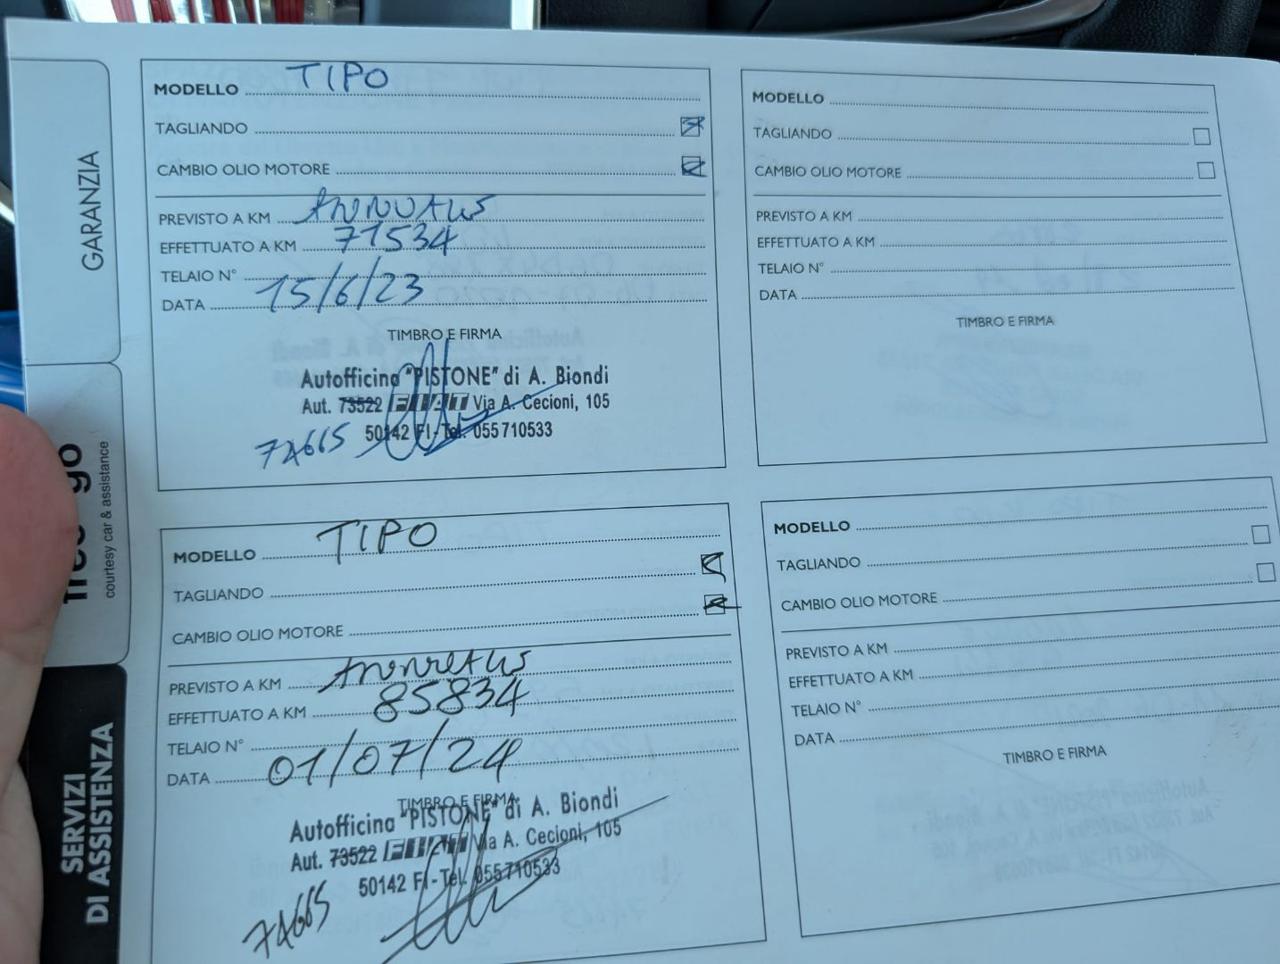 GARANZIA
courtesy car & assistance
SERVIZI
DI ASSISTENZA
MODELLO TIPO
TAGLIANDO
CAMBIO OLIO MOTORE
PREVISTO A KM
EFFETTUATO A KM 71534
TELAIO N°
DATA 15/6/23
TIMBRO E FIRMA
Autofficina "PISTONE" di A. Biondi
Aut. 73522 FIAT Via A. Cecioni, 105
50142 FI-Tel. 055710533
74665
MODELLO TIPO
TAGLIANDO
CAMBIO OLIO MOTORE
PREVISTO A KM
EFFETTUATO A KM 85834
TELAIO N°
DATA 01/07/24
TIMBRO E FIRMA
Autofficina "PISTONE" di A. Biondi
Aut. 73522 FIAT Via A. Cecioni, 105
50142 FI-Tel. 055710533
74665
MODELLO
TAGLIANDO
CAMBIO OLIO MOTORE
PREVISTO A KM
EFFETTUATO A KM
TELAIO N°
DATA
TIMBRO E FIRMA
MODELLO
TAGLIANDO
CAMBIO OLIO MOTORE
PREVISTO A KM
EFFETTUATO A KM
TELAIO N°
DATA
TIMBRO E FIRMA